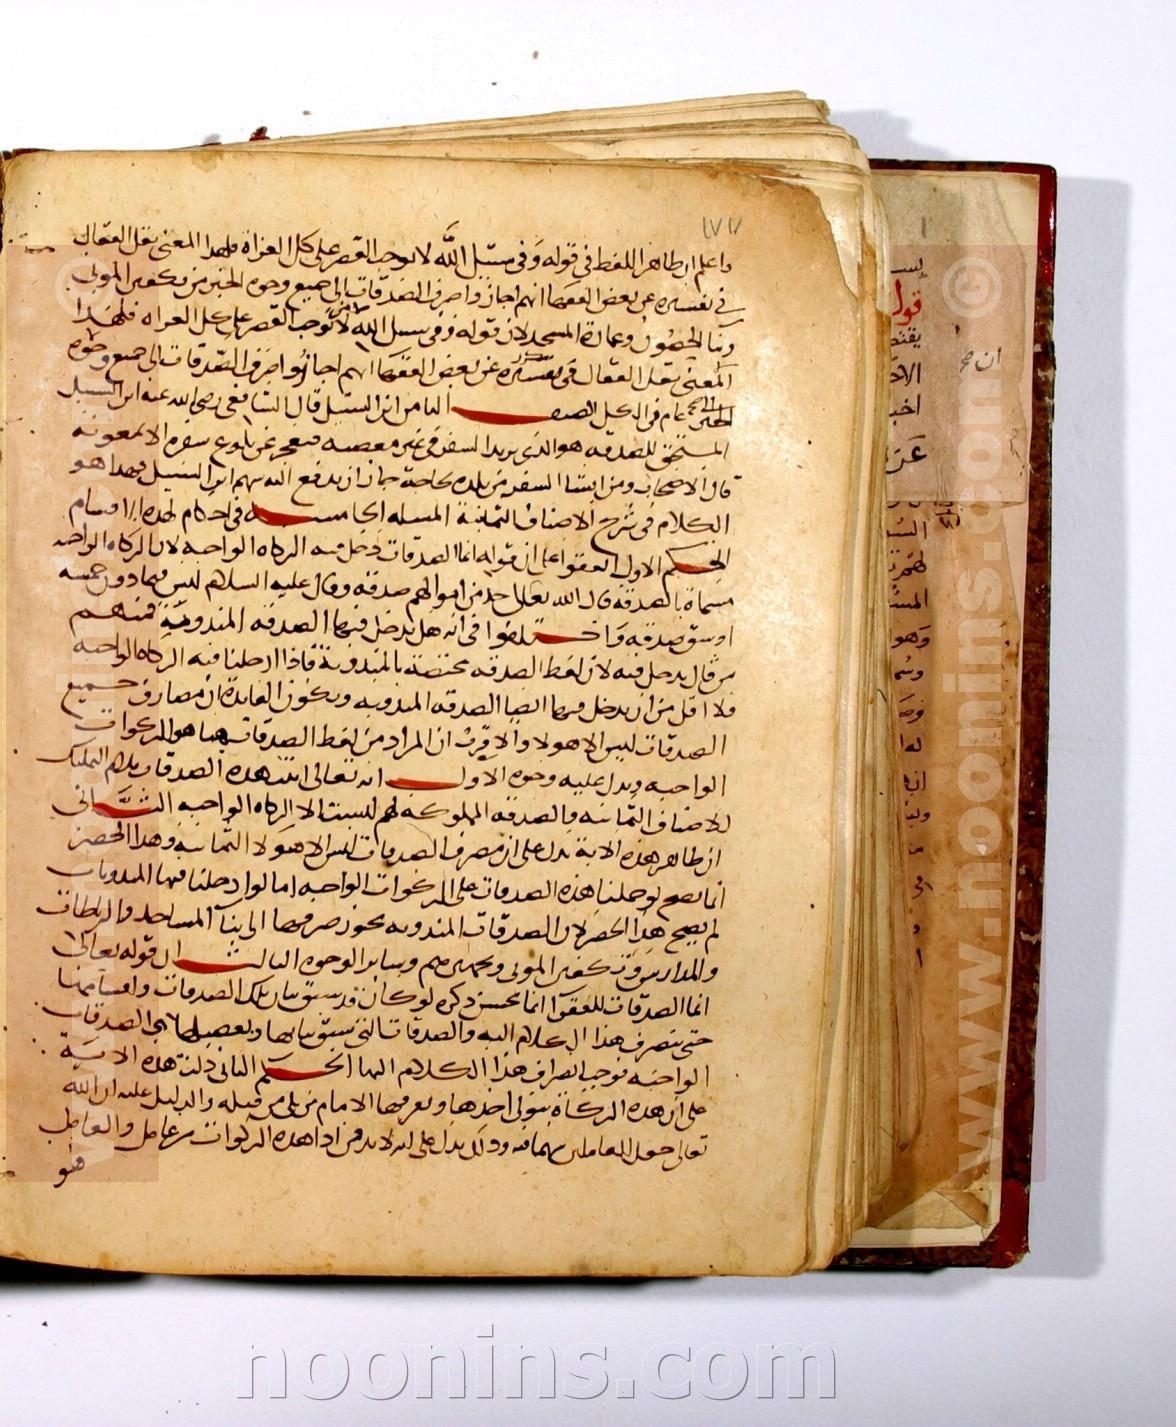 ١٧٧
واعلم ان ظاهر اللفظ في قوله وفي سبيل الله لا يوجب القصر على كل الغزاة فلهذا المعنى نقل القفال
في تفسيره عن بعض الفقها انهم اجازوا صرف الصدقات الى جميع وجوه الخير من تكفين الموتى
وبنا الحصون وعمارة المسجد لان قوله وفي سبيل الله لا يوجب القصر على كل الغزاه فلهذا
المعنى نقل القفال في تفسيره عن بعض الفقها انهم اجازوا صرف الصدقات الى جميع وجوه
الخير عام في الكل الصنف الثامن ابن السبيل قال الشافعي رضي الله عنه ابن السبيل
المستحق للصدقه هو الذي يريد السفر في غير معصيه فيعجز عن بلوغ سفره الا بمعونه
قال الاصحاب ومن انشا السفر من بلده لحاجة جاز ان يدفع اليه سهم ابن السبيل فهذا هو
الكلام في شرح الاصناف الثمانية المسله الخامسه في احكام لهذه الاقسام
الحكم الاول اتفقوا على ان قوله انما الصدقات دخل فيه الزكاه الواجبه لان الزكاه الواجبه
مسماة بالصدقه قال الله تعالى خذ من اموالهم صدقه وقال عليه السلام ليس فيما دون خمسه
اوسق صدقه واختلفوا في انه هل يدخل فيها الصدقه المندوبة فمنهم
من قال يدخل فيه لان لفظ الصدقه مختصه بالمندوبة فاذا ادخلنا فيه الزكاه الواجبه
فلا اقل من ان يدخل فيها ايضا الصدقه المندوبه ويكون الفايدة ان مصارف جميع
الصدقات ليس الا هولا والاقرب ان المراد من لفظ الصدقات ههنا هو الزكوات
الواجبه ويدل عليه وجوه الاول انه تعالى اثبت هذه الصدقات بلام التمليك
للاصناف الثمانيه والصدقه المملوكه لهم ليست الا الزكاه الواجبه الثاني
ان ظاهر هذه الاية يدل على ان مصرف الصدقات ليس الا هولا الثمانية وهذا الحصر
انما يصح لو حملنا هذه الصدقات على الزكوات الواجبه اما لو ادخلنا فيها المندوبات
لم يصح هذا الحصر لان الصدقات المندوبه يجوز صرفها الى بنآ المساجد والرباطات
والمدارس وتكفين الموتى وتجهيزهم وساير الوجوه الثالث ان قوله تعالى
انما الصدقات للفقرآ انما يحسن ذكره لو كان قد سبق بيان تلك الصدقات واقسامها
حتى ينصرف هذا الكلام اليه والصدقات التي سبق بيانها وتفصيلها هي الصدقات
الواجبه فوجب انصراف هذا الكلام اليها الحكم الثاني دلت هذه الاية
على ان هذه الزكاة يتولى اخذها وتفرقها الامام من يلى من قبله والدليل عليه ان الله
تعالى جعل للعاملين سهما فيه وذلك يدل على انه لا بد في اداهذه الزكوات من عامل والعامل
هو
قول
اخبر
ان صح
وهو
www.noonins.com
©
noonins.com